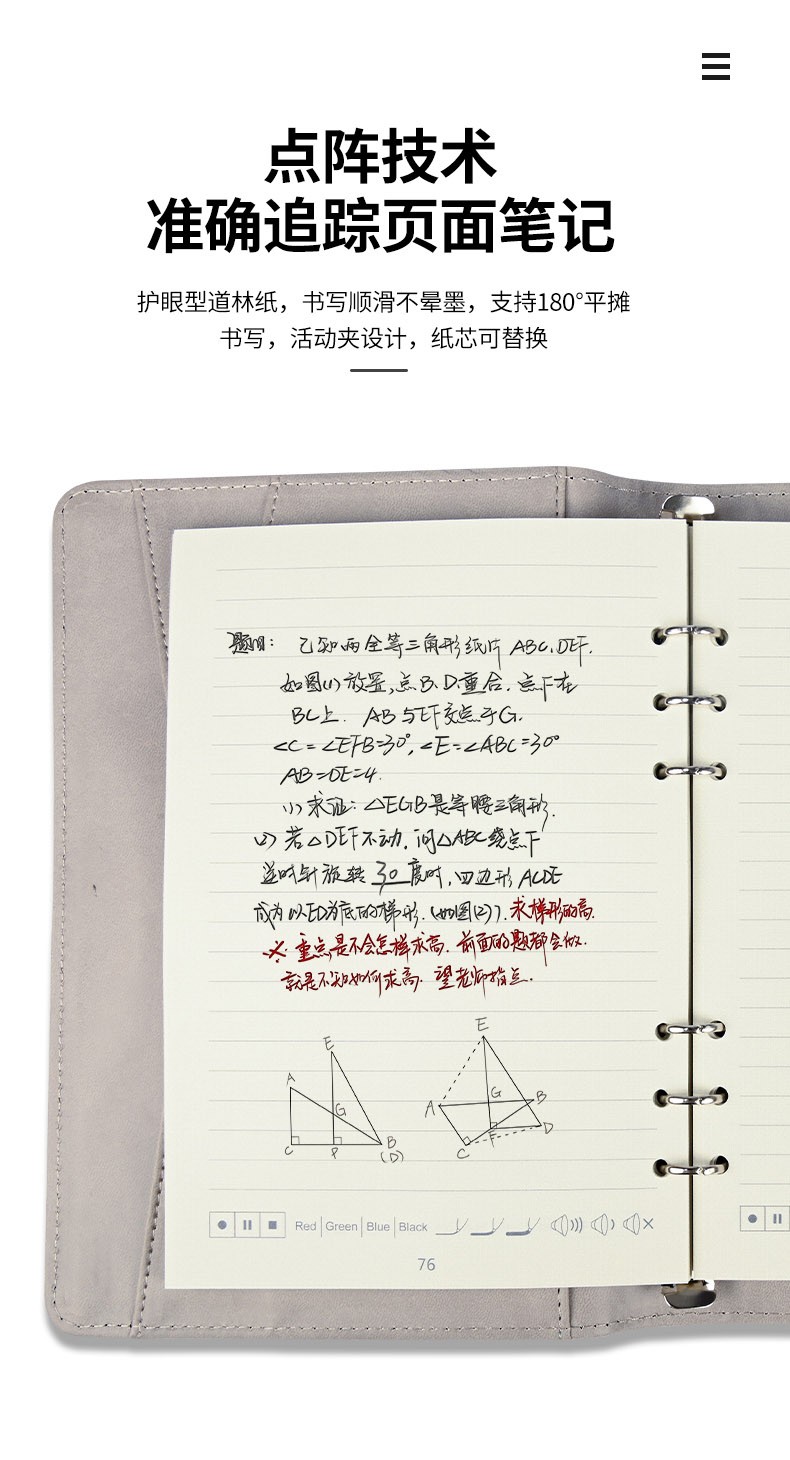 点阵技术
准确追踪页面笔记
护眼型道林纸，书写顺滑不晕墨，支持180°平摊
书写，活动夹设计，纸芯可替换
题目: 已知两全等三角形纸片 ABC, DEF.
如图(1)放置,点B、D重合. 点F在
BC上. AB与EF交点于G.
∠C=∠EFB=30°, ∠E=∠ABC=30°
AB=DE=4.
(1) 求证: △EGB是等腰三角形.
(2) 若△DEF不动, 问△ABC绕点F
逆时针旋转 30 度时, 四边形 ACDE
成为以ED为底的梯形. (如图(2)). 求梯形的高.
※ 重点是不会怎样求高. 前面的题都会做.
就是不知如何求高. 望老师指点.
E
A
G
C
F
B
(D)
E
A
G
B
F
D
C
Red | Green | Blue | Black
76